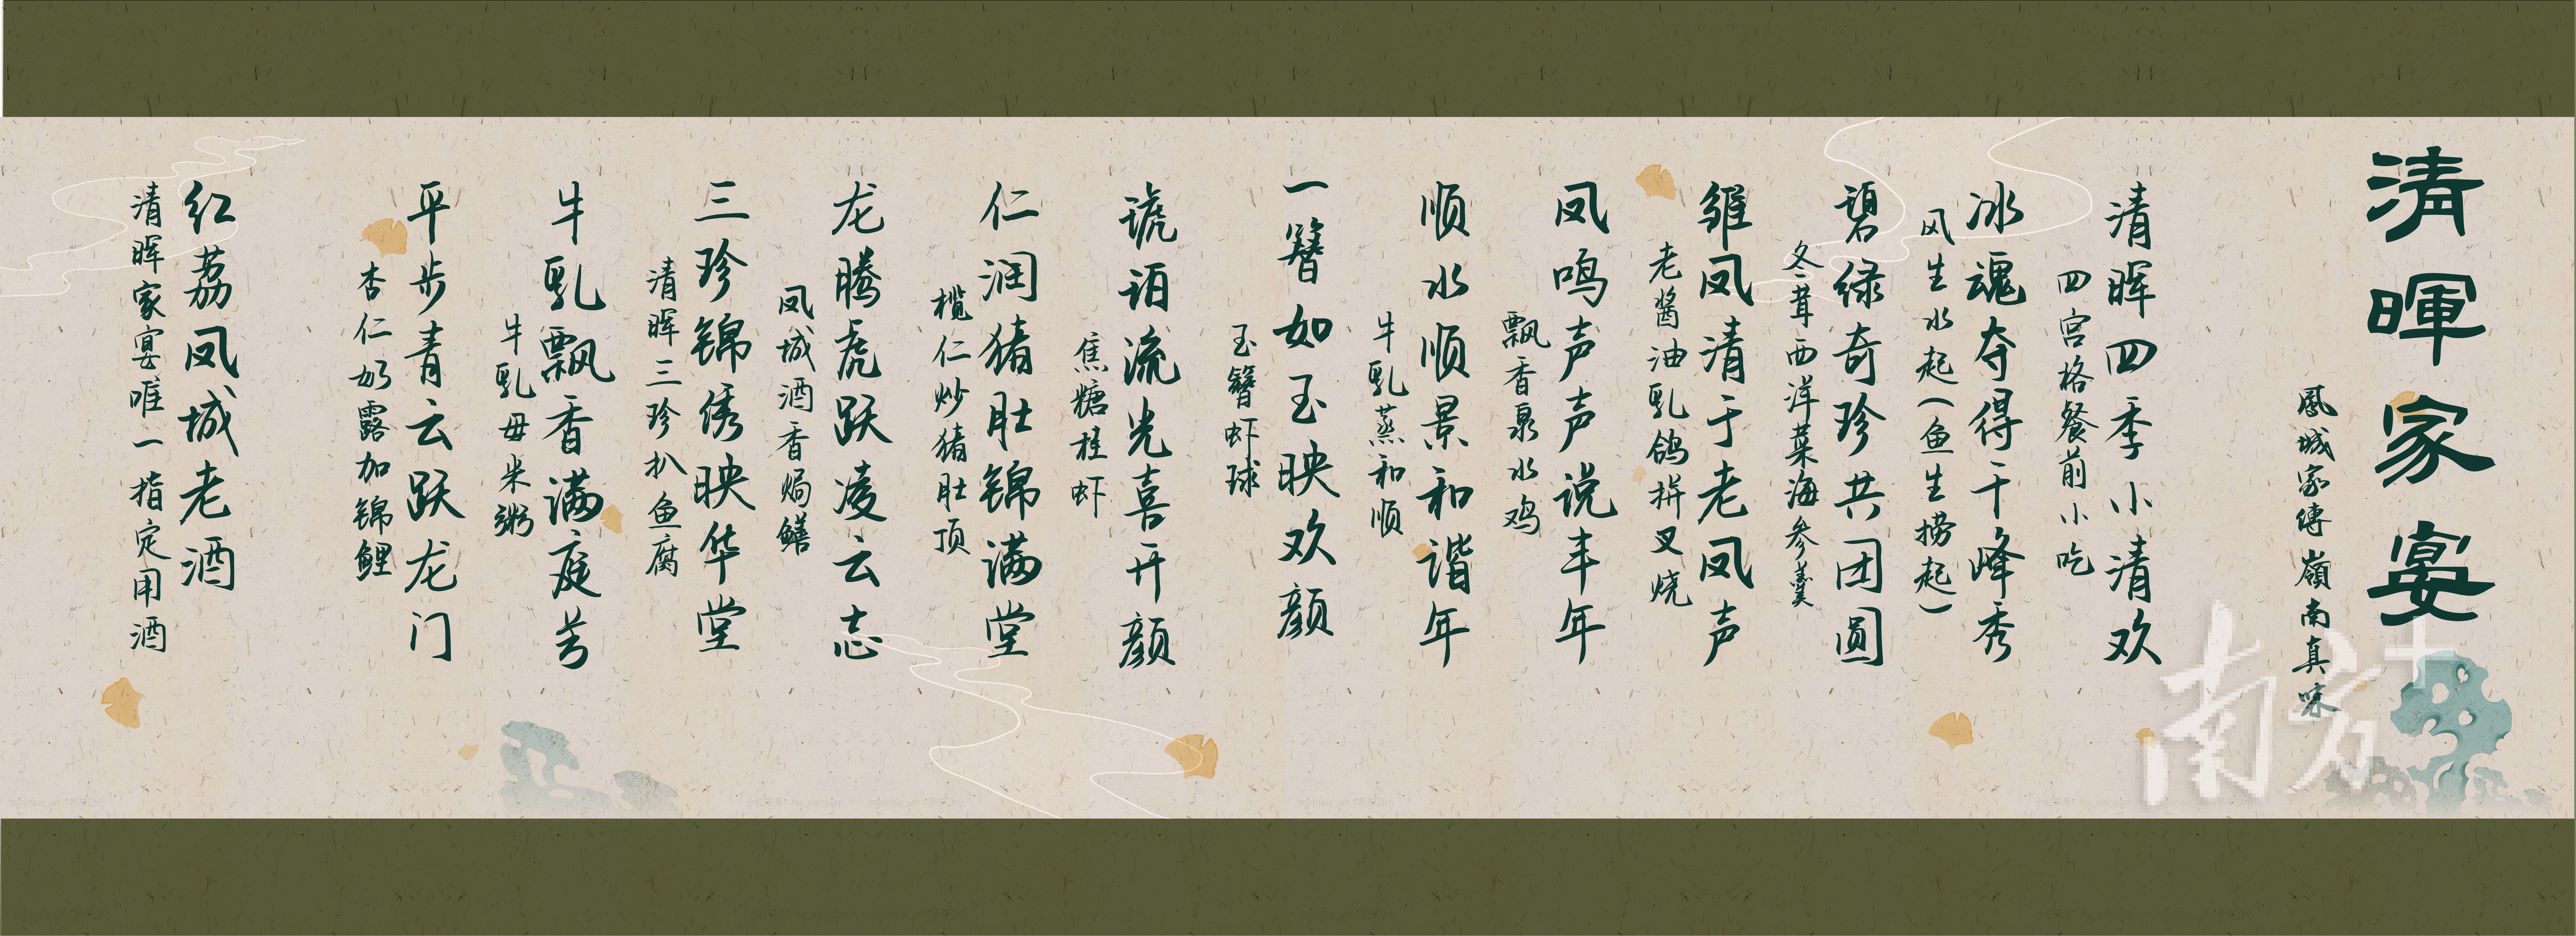 清暉家宴
鳳城家傳嶺南真味
清晖四季小清欢
四宫格餐前小吃
冰魂夺得千峰秀
风生水起(鱼生捞起)
碧绿奇珍共团圆
冬茸西洋菜海参羹
雏凤清于老凤声
老酱油乳鸽拼叉烧
凤鸣声声说丰年
飘香泉水鸡
顺水顺景和谐年
牛乳蒸和顺
一簪如玉映欢颜
玉簪虾球
琥珀流光喜开颜
焦糖桂虾
仁润猪肚锦满堂
榄仁炒猪肚顶
龙腾虎跃凌云志
凤城酒香焗鳝
三珍锦绣映华堂
清晖三珍扒鱼腐
牛乳飘香满庭芳
牛乳毋米粥
平步青云跃龙门
杏仁奶露加锦鲤
红荔凤城老酒
清晖家宴唯一指定用酒
南方+